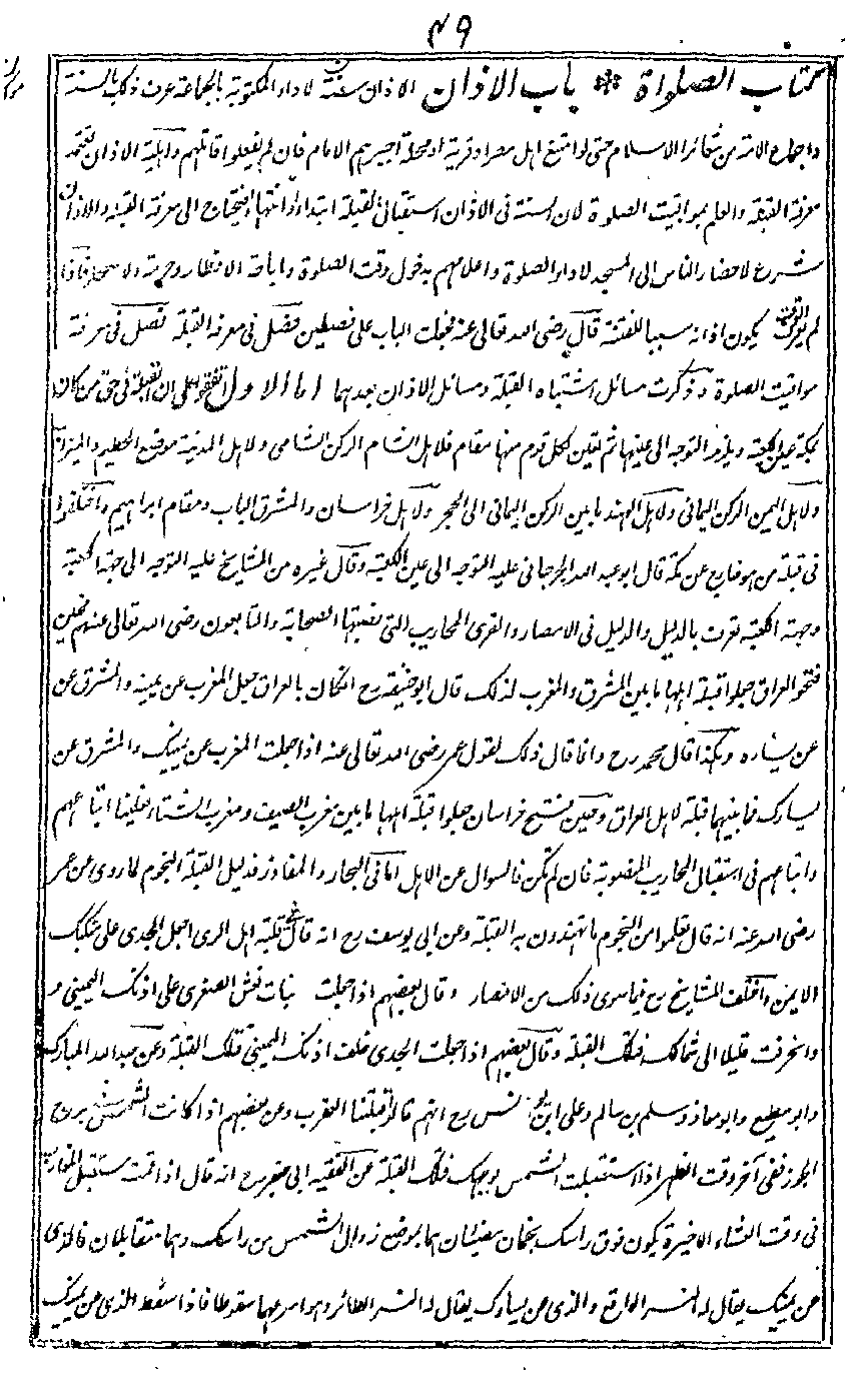 ٤٩
كتاب الصلواة * باب الاذان الاذان سنة لاداء المكتوبة بالجماعة عرف ذلك بالسنة
واجماع الامة من شعائر الاسلام حتى لو امتنع اهل مصر او قرية او محلة اجبرهم الامام فان لم يفعلوا قاتلهم واهلية الاذان تعتمد
معرفة القبلة والعلم بمواقيت الصلوة لان السنة فى الاذان استقبال القبلة ابتداء وانتهاء فيحتاج الى معرفة القبلة والاذان
شرع لاحضار الناس الى المسجد لاداء الصلوة واعلامهم بدخول وقت الصلوة واباحة الافطار وحرمة والاسحار فاذا
لم يعرف الوقت يكون اذانه سببا للفتنة قال رضى الله تعالى عنه فجعلت الباب على فصلين فصل فى معرفة القبلة فصل فى معرفة
مواقيت الصلوة وذكرت مسائل اشتباه القبلة ومسائل الاذان بعدهما اما الاول اتفقوا على ان القبلة فى حق من كان
بمكة عين الكعبة ويلزمه التوجه الى عينها ثم تعين لكل قوم منها مقام فلاهل الشام الركن الشامى ولاهل المدينة موضع الحطيم والميزاب
ولاهل اليمن الركن اليمانى ولاهل الهند ما بين الركن اليمانى الى الحجر ولاهل خراسان والمشرق الباب ومقام ابراهيم واختلفوا
فى قبلة من هو نائ عن مكة قال ابو عبد الله الجرجانى عليه التوجه الى عين الكعبة وقال غيره من المشايخ عليه التوجه الى جهة الكعبة
وجهة الكعبة تعرف بالدليل والدليل فى الامصار والقرى المحاريب التى نصبتها الصحابة والتابعون رضى الله تعالى عنهم فحين
فتحوا العراق جعلوا قبلة اهلها ما بين المشرق والمغرب لذلك قال ابو حنيفة رح ان كان بالعراق جعل المغرب عن يمينه والمشرق عن
عن يساره وهكذا قال محمد رح وانما قال ذلك لقول عمر رضى الله تعالى عنه اذا جعلت المغرب عن يمينك والمشرق عن
يسارك فما بينهما قبلة لاهل العراق وحين فتح خراسان جعلوا قبلة اهلها ما بين مغرب الصيف ومغرب الشتاء فعلينا اتباعهم
واتباعهم فى استقبال المحاريب المنصوبة فان لم تكن فالسوال عن الاهل اما فى البحار والمفاوز فدليل القبلة النجوم لما روى عن عمر
رضى الله عنه انه قال تعلموا من النجوم ما تهتدون به القبلة وعن ابى يوسف رح انه قال فى قبلة اهل الرى اجعل الجدى على منكبك
الايمن واختلف المشايخ رح فيما سوى ذلك من الامصار وقال بعضهم اذا جعلت بنات نعش الصغرى على اذنك اليمنى و
وانحرفت قليلا الى شمالك فتلك القبلة وقال بعضهم اذا جعلت الجدى خلف اذنك اليمنى فتلك القبلة وعن عبد الله المبارك
وابو مطيع وابو معاذ وسلم بن سالم وعلى ابن يونس رح انهم قالوا قبلتنا العقرب وعن بعضهم اذا كانت الشمس فى برج
الجوز ففى آخر وقت الظهر اذا استقبلت الشمس بوجهك فتلك القبلة عن الفقيه ابى جعفر رح انه قال اذا قمت مستقبل المغارب
فى وقت العشاء الاخيرة يكون فوق راسك نجمان مضيئان هما بموضع زوال الشمس من راسك وهما متقابلان فالذى
عن يمينك يقال له النسر الواقع والذى عن يسارك يقال له النسر الطائر وهو اسرعهما سقوطا فاذا سقط الذى عن يمينك